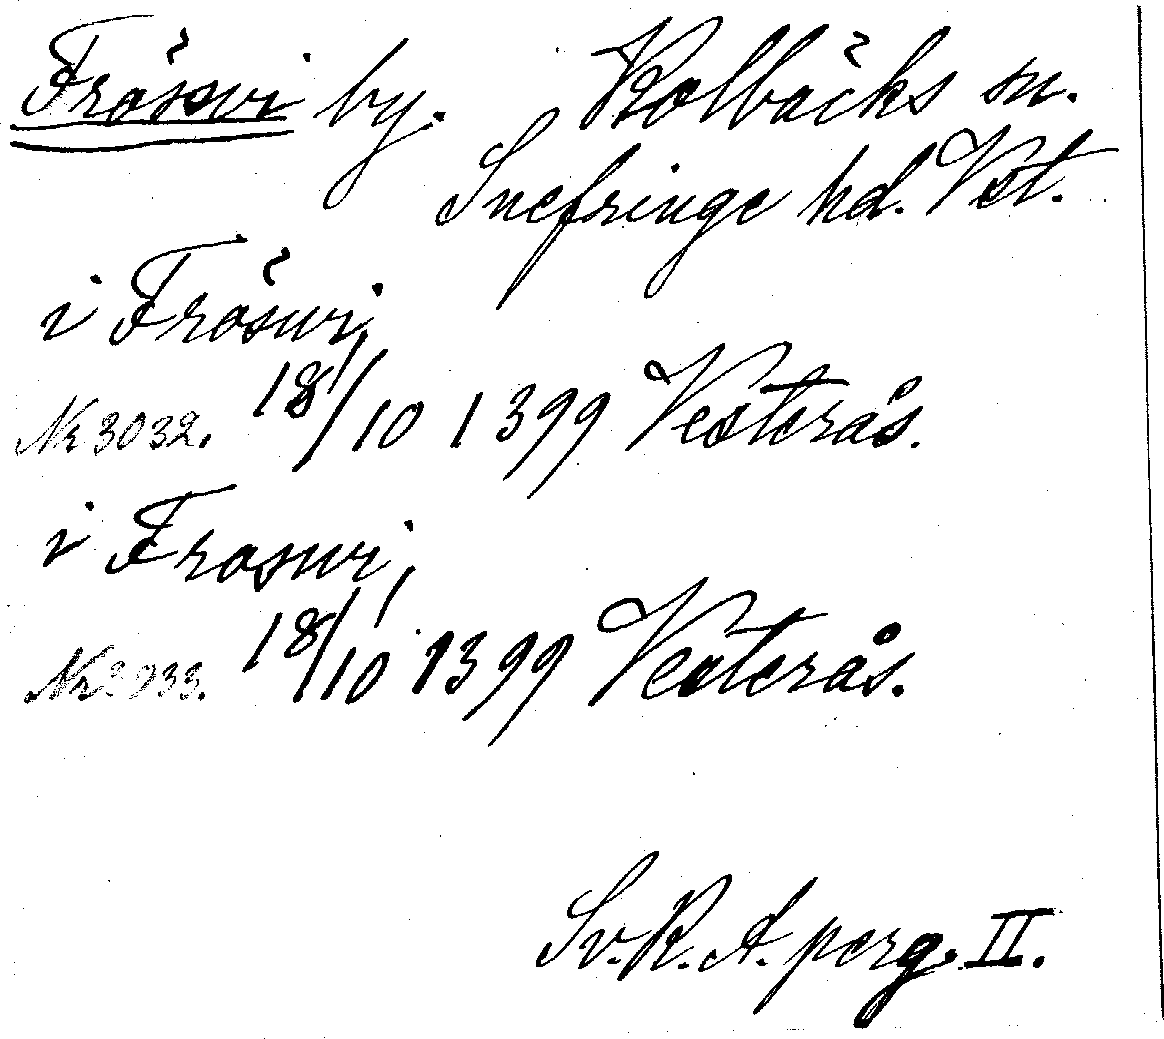 Frösvi by. Kolbäcks sn.
Snefringe hd. Vst.
i Frösvi,
Nr 3032. 18/10 1399 Vesterås.
i Frasvi,
Nr 3033. 18/10 1399 Vesterås.
Sv. R. A. perg. II.